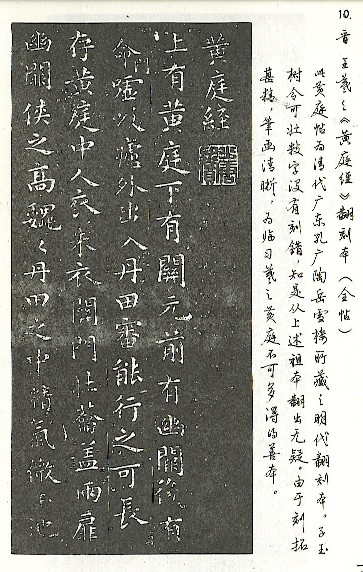 10.
晋 王羲之《黄庭经》翻刻本(全帖)
此黄庭帖为清代广东孔广陶岳雪楼所藏之明代翻刻本。子玉
树令可壮数字没有刻错,知是从上述祖本翻出无疑。由于刻拓
甚精,笔画清晰,为临习羲之黄庭不可多得的善本。
黄庭經
上有黄庭下有關元前有幽闕後有
命門嘘吸廬外出入丹田審能行之可長
存黄庭中人衣朱衣關門壯蘥蓋兩扉
幽闕侠之高巍々丹田之中精氣微玉池